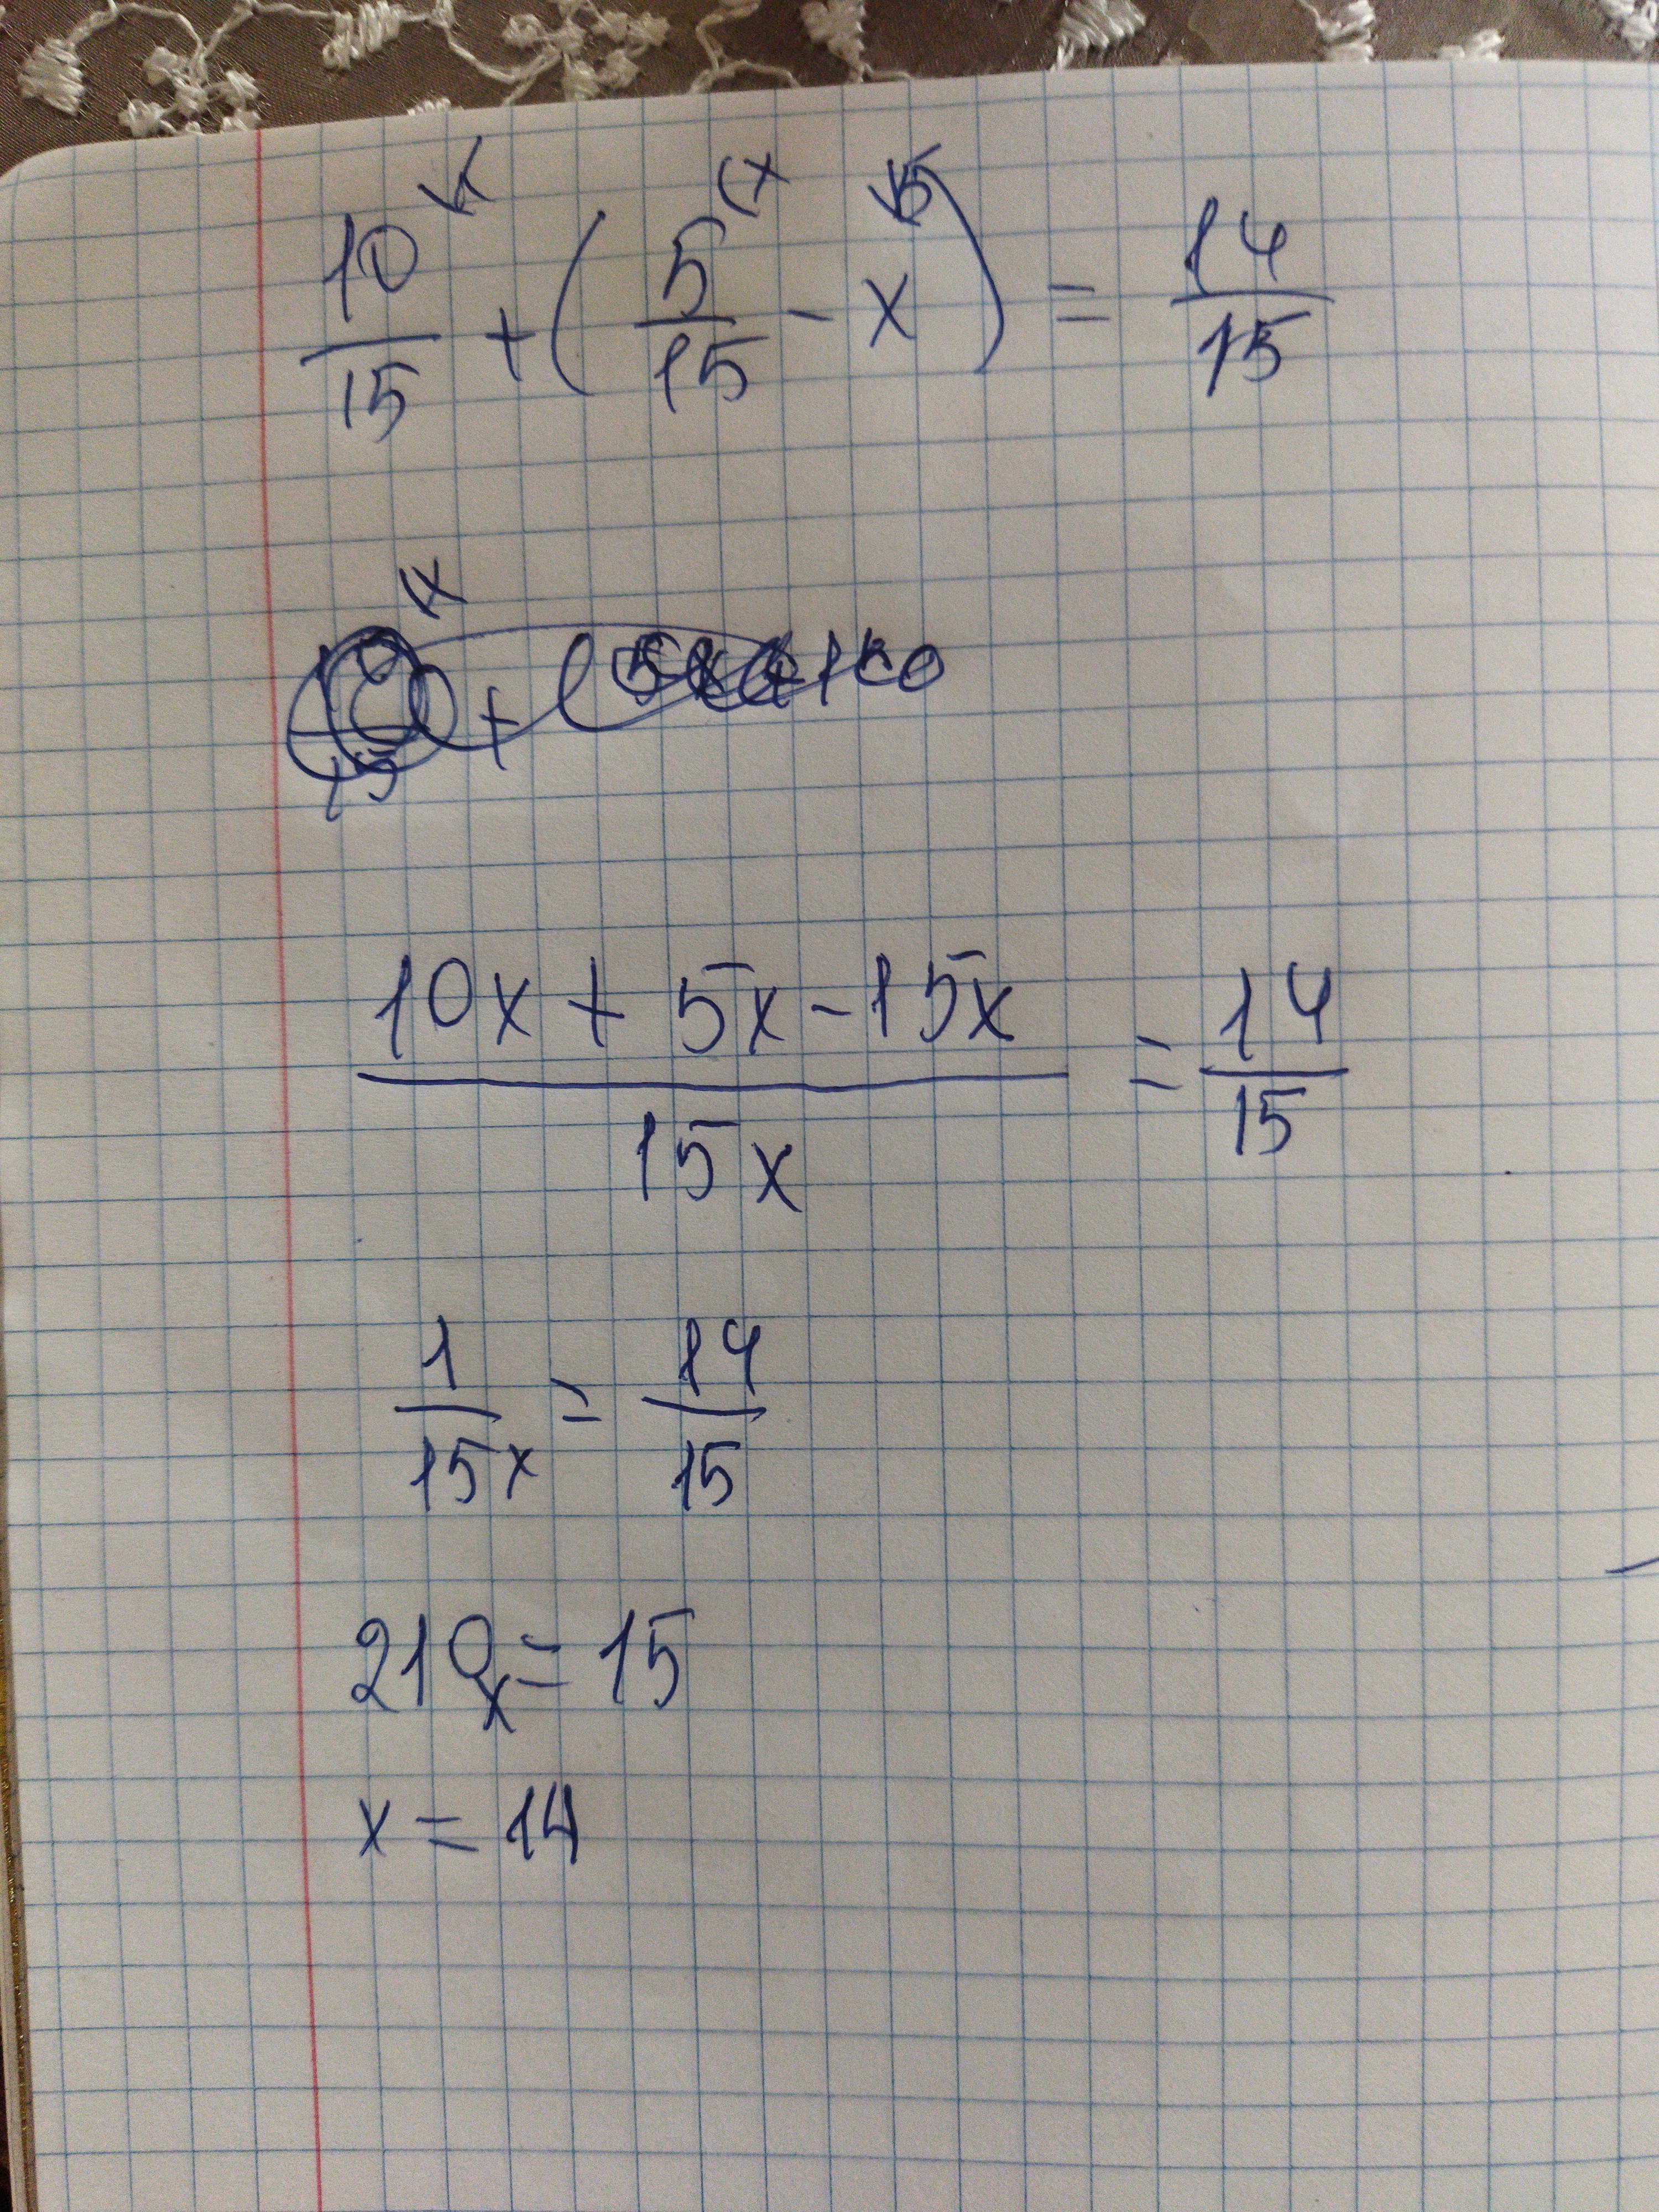 10/15 + (5/15 - x) = 14/15
(10x + 5x - 15x)/15x = 14/15
1/15x = 14/15
210x = 15
x = 14